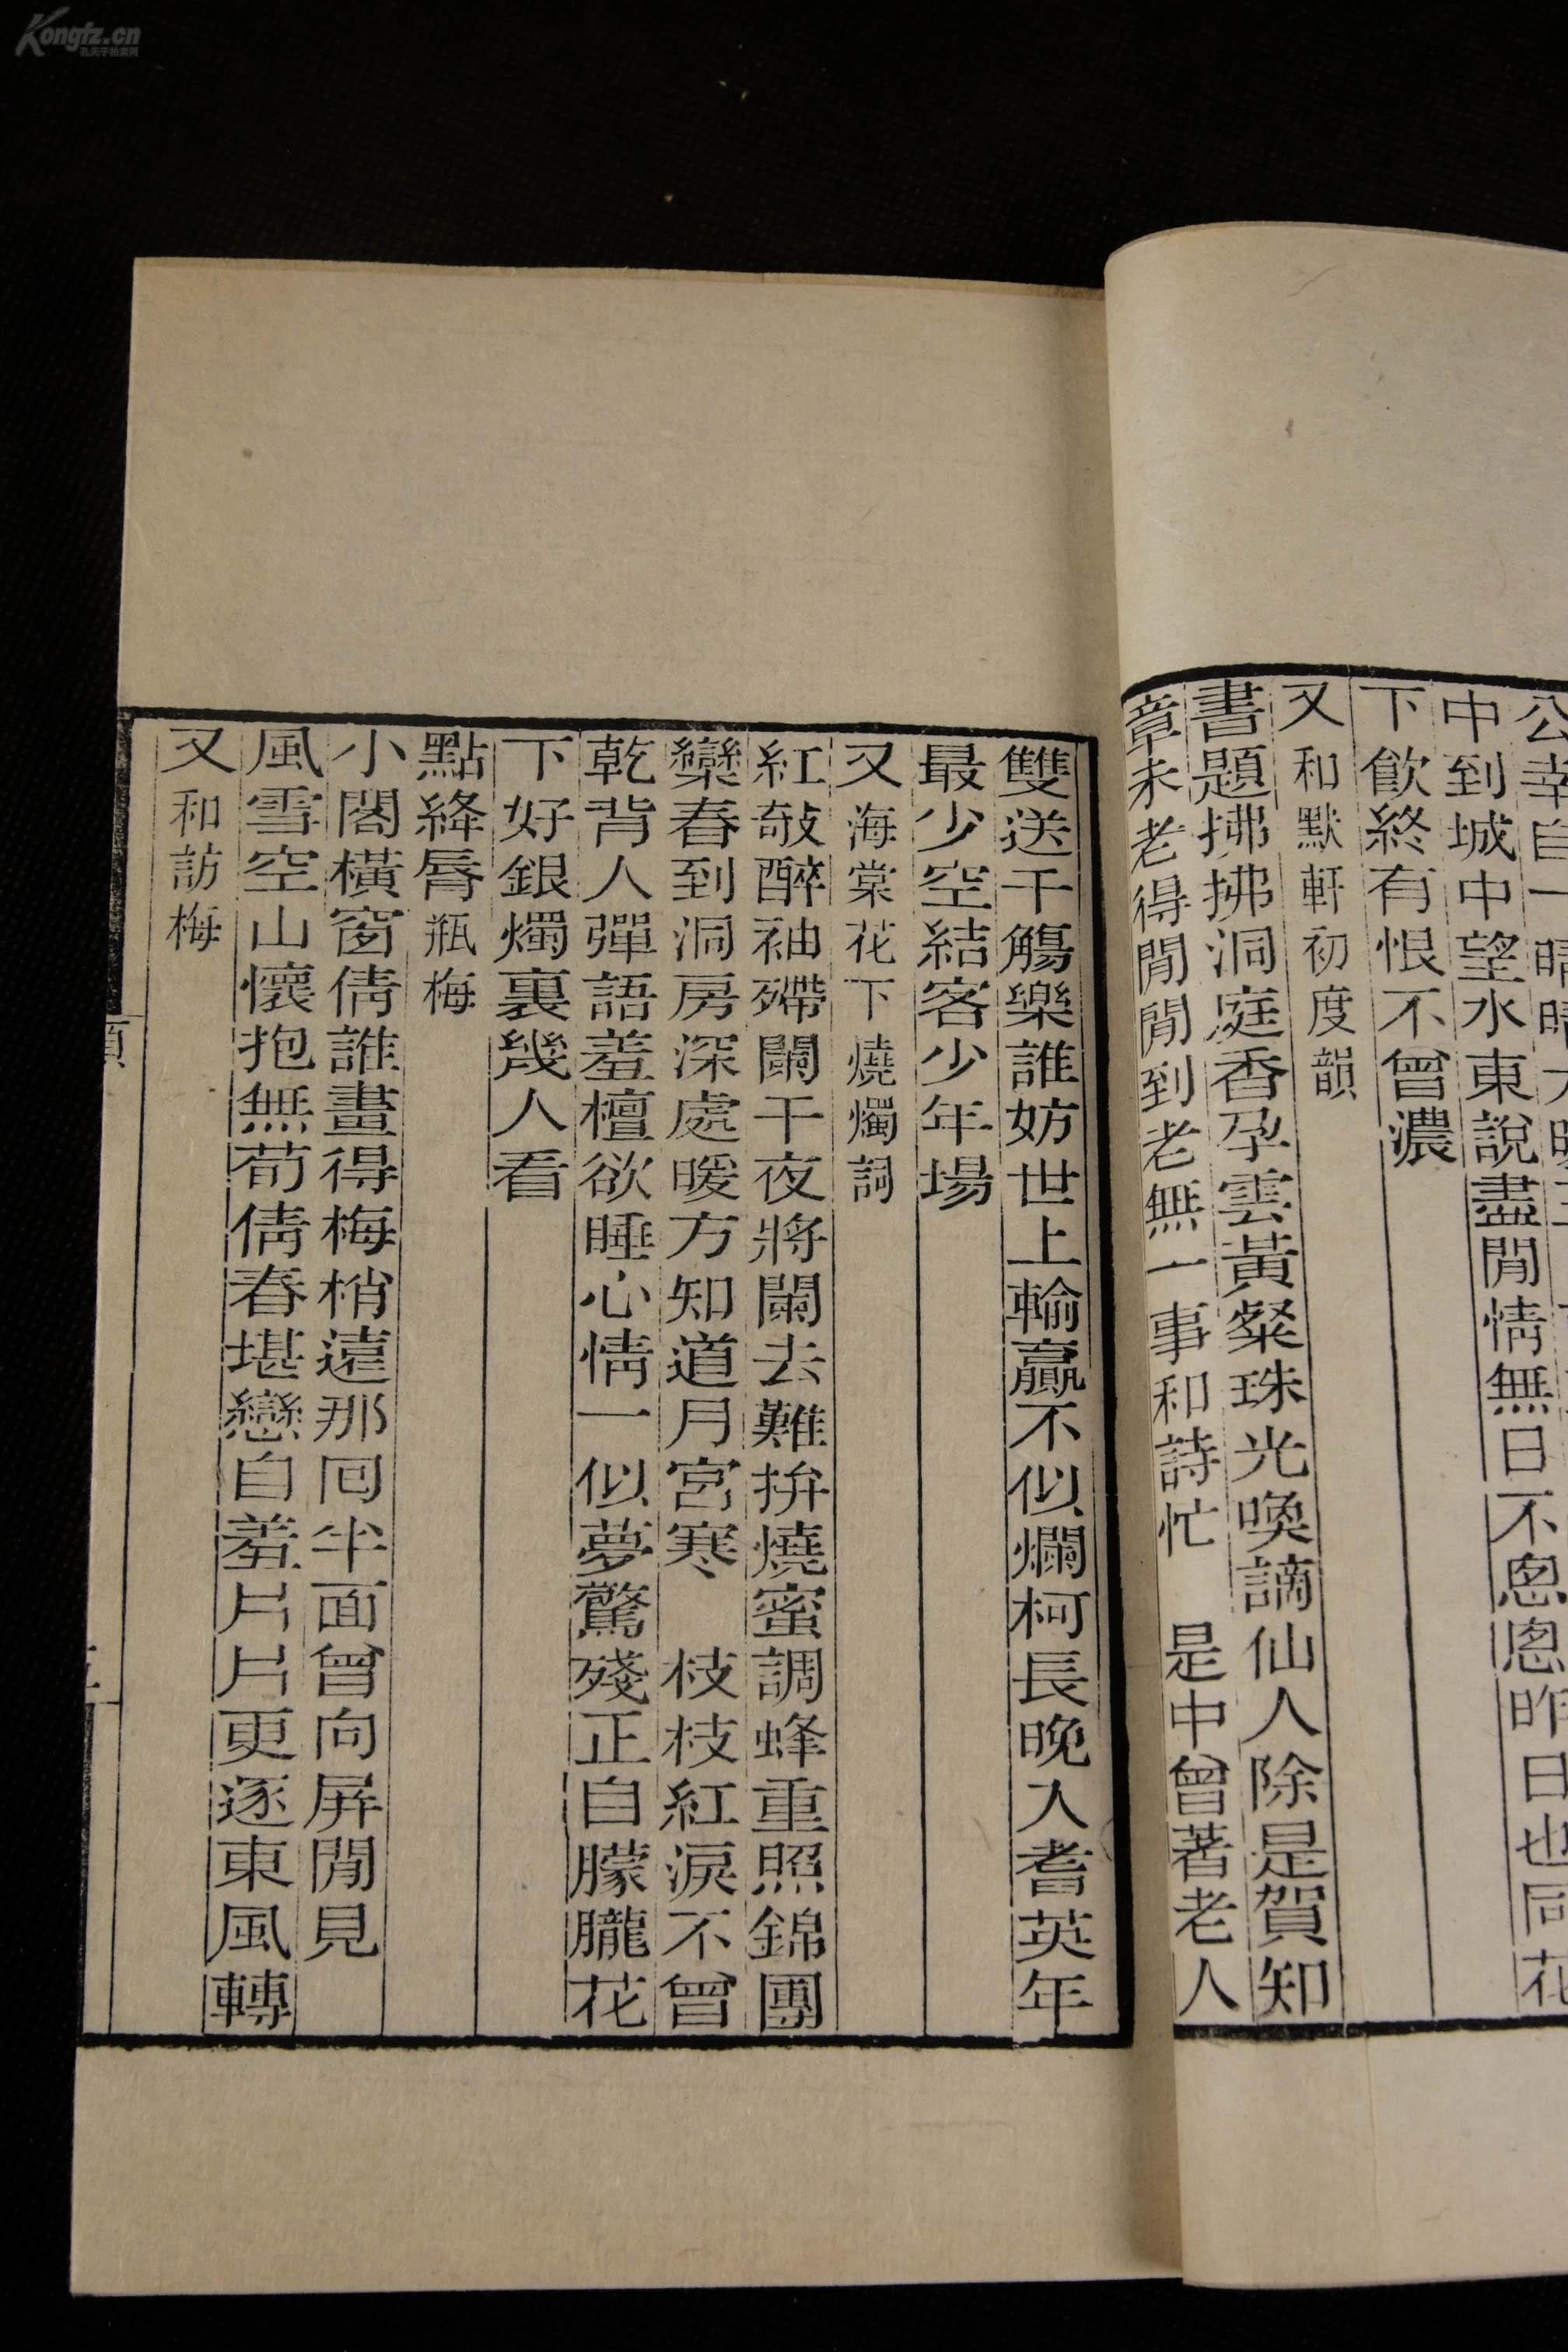 公幸自一晴晴
中到城中望水東說盡閒情無日不悤悤昨日也同花
下飲終有恨不曾濃
又和默軒初度韻
書題拂拂洞庭香孕雲黃粲珠光喚謫仙人除是賀知
章未老得閒閒到老無一事和詩忙　是中曾著老人
雙送千觴樂誰妨世上輸贏不似爛柯長晚入耆英年
最少空結客少年場
又海棠花下燒燭詞
紅攲醉袖殢闌干夜將闌去難拚燒蜜調蜂重照錦團
欒春到洞房深處暖方知道月宮寒　枝枝紅淚不曾
乾背人彈語羞檀欲睡心情一似夢驚殘正自朦朧花
下好銀燭裏幾人看
點絳脣瓶梅
小閣橫窗倩誰畫得梅梢遠那回半面曾向屏閒見
風雪空山懷抱無荀倩春堪戀自羞片片更逐東風轉
又和訪梅
Kongfz.cn
孔夫子拍卖网